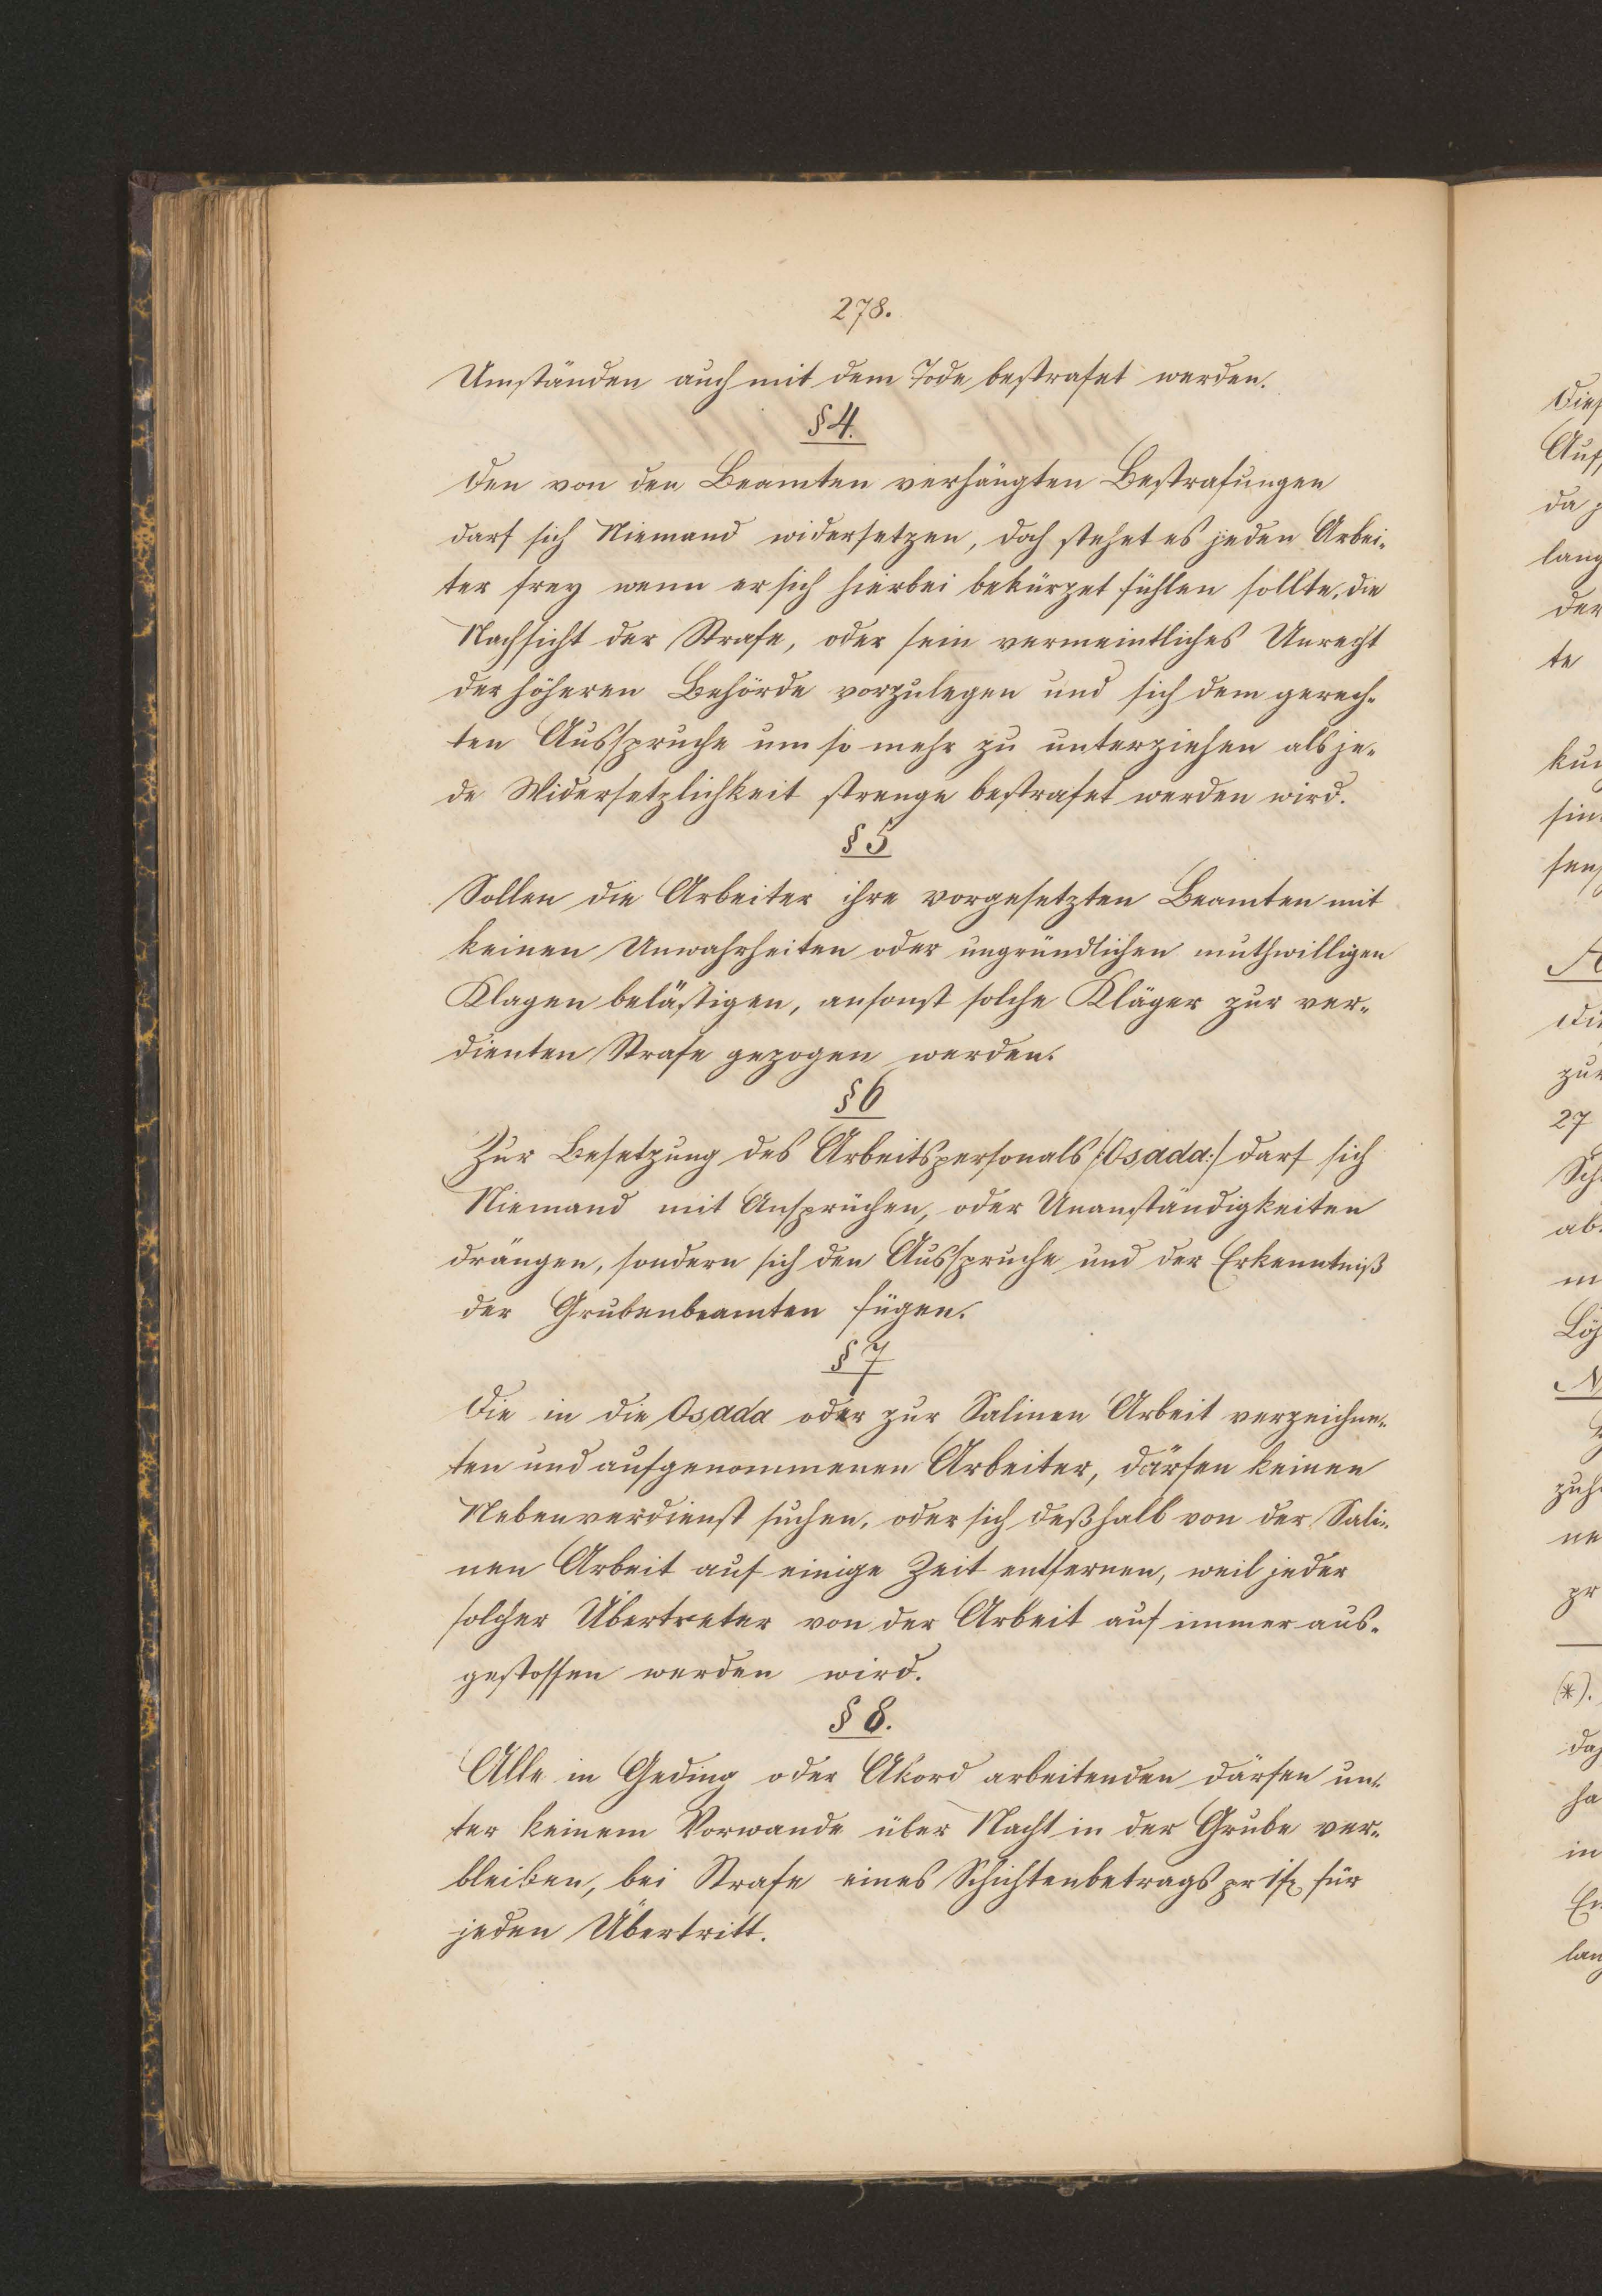 278.
Umständen auch mit dem Tode bestrafet werden.
§ 4.
Den von den Beamten verhängten Bestrafungen
darf sich Niemand widersetzen, doch stehet es jeden Arbei-
ter frey wenn er sich hierbei bekürzet fühlen sollte, die
Nachsicht der Strafe, oder sein vermeintliches Unrecht
der höheren Behörde vorzulegen und sich dem gerech-
ten Ausspruche um so mehr zu unterziehen als je-
de Widersetzlichkeit strenge bestrafet werden wird.
§ 5
Sollen die Arbeiter ihre vorgesetzten Beamten mit
keinen Unwahrheiten oder ungründlichen muthwilligen
Klagen belästigen, ansonst solche Kläger zur ver-
dienten Strafe gezogen werden.
§ 6
Zur Besetzung des Arbeitspersonals /:Osada:/ darf sich
Niemand mit Ansprüchen, oder Unanständigkeiten
drängen, sondern sich den Ausspruche und der Erkenntniß
der Grubenbeamten fügen.
§ 7
Die in die Osada oder zur Salinen Arbeit verzeichne-
ten und aufgenommenen Arbeiter, därfen keinen
Nebenverdienst suchen, oder sich deßhalb von der Sali-
nen Arbeit auf einige Zeit entfernen, weil jeder
solcher Übertreter von der Arbeit auf immer aus-
gestossen werden wird.
§ 8.
Alle in Geding oder Akord arbeitenden därfen un-
ter keinem Vorwande über Nacht in der Grube ver-
bleiben, bei Strafe eines Schichtenbetrags pr 1 f für
jeden Übertritt.
da
lang
der
te
zur
27
ab
in
(*).
in